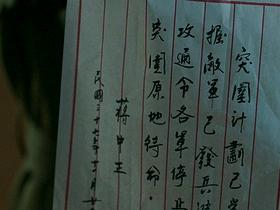 突圍計劃已掌
握敵軍已發兵
攻通令各軍停止
突圍原地待命
蔣中正
民國三十七年十二月